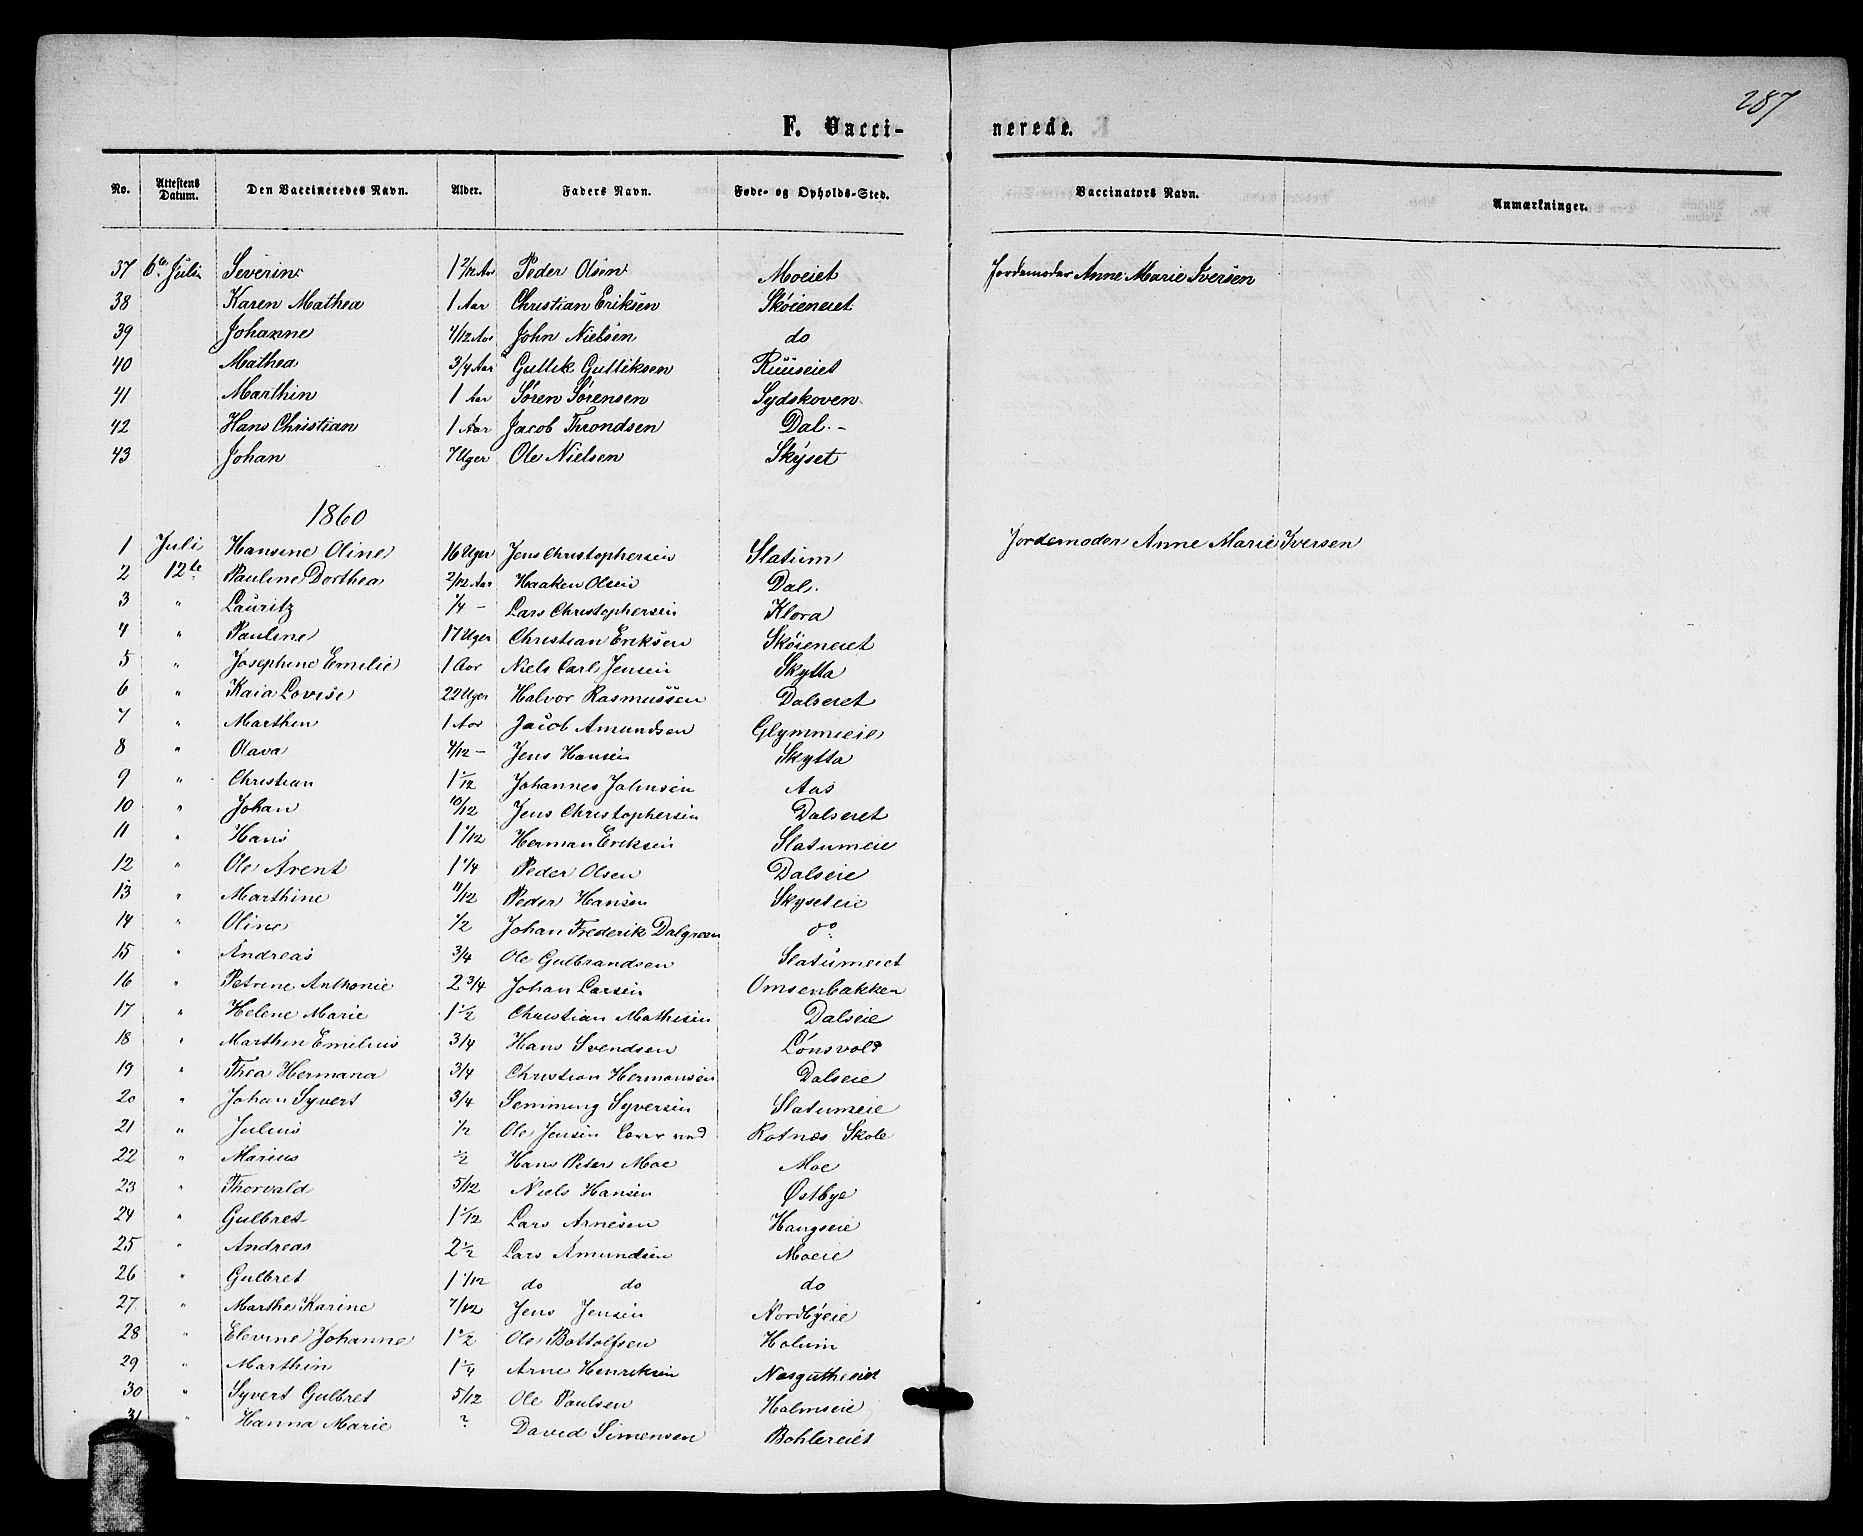 287
F. Vaccinerede.
No. Attestens Datum. Den Vaccineredes Navn. Alder. Faders Navn. Føde- og Opholds-Sted. Vaccinators Navn. Anmærkninger.
37 6te Juli Severin 1 2/12 Aar Peder Olsen Moeiet Jordemoder Anne Marie Iversen
38 Karen Mathea 1 Aar Christian Eriksen Skøieneiet
39 Johanne 4/12 Aar John Nielsen do
40 Mathea 3/4 Aar Gullik Gulliksen Ruuseiet
41 Marthin 1 Aar Søren Sørensen Sydskoven
42 Hans Christian 1 Aar Jacob Throndsen Dal.-
43 Johan 7 Uger Ole Nielsen Skyset
1860
1 Juli Hansine Oline 16 Uger Jens Christophersen Slatum Jordemoder Anne Marie Iversen
2 12te Pauline Dorthea 2/12 Aar Haaken Olsen Dal.
3 " Lauritz 1/4 - Lars Christophersen Klora
4 " Pauline 17 Uger Christian Eriksen Skøieneiet
5 " Josephine Emilie 1 Aar Niels Carl Jensen Skytta
6 " Kaia Lovise 22 Uger Halvor Rasmussen Dalseiet
7 " Marthin 1 Aar Jacob Amundsen Glymmeie
8 " Olava 4/12 - Jens Hansen Skytta
9 " Christian 1 1/12 Johannes Johnsen Aas
10 " Johan 10/12 Jens Christophersen Dalseiet
11 " Hans 1 1/12 Herman Eriksen Slatumeie
12 " Ole Arent 1 1/4 Peder Olsen Dalseie
13 " Marthine 11/12 Peder Hansen Skyseteie
14 " Oline 1/2 Johan Frederik Dalgreen do
15 " Andreas 3/4 Ole Gulbrandsen Slatumeiet
16 " Petrine Anthonie 2 3/4 Johan Larsen Omsenbakken
17 " Helene Marie 1 1/2 Christian Mathisen Dalseie
18 " Marthin Emilius 3/4 Hans Svendsen Lønsvold
19 " Thea Hermana 3/4 Christian Hermansen Dalseie
20 " Johan Syvert 3/4 Semming Syversen Slatumeie
21 " Julius 1/2 Ole Jensen Lærer ved Rotnæs Skole
22 " Marius 1/2 Hans Peter Moe Moe
23 " Thorvald 5/12 Niels Hansen Østbye
24 " Gulbret 1 1/12 Lars Arnesen Haugseie
25 " Andreas 2 1/2 Lars Amundsen Moeie
26 " Gulbret 1 1/12 do do do
27 " Marthe Karine 7/12 Jens Jensen Nordbyeie
28 " Elevine Johanne 1 1/2 Ole Bottolfsen Holum
29 " Marthin 1 1/4 Arne Henriksen
30 " Syvert Gulbret 5/12 Ole Paulsen Holmseie
31 " Hanna Marie ? David Simensen Bohlereiet